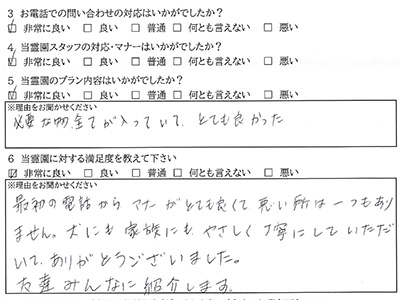 3 お電話での問い合わせの対応はいかがでしたか?
☑ 非常に良い □ 良い □ 普通 □ 何とも言えない □ 悪い
4 当霊園スタッフの対応・マナーはいかがでしたか?
☑ 非常に良い □ 良い □ 普通 □ 何とも言えない □ 悪い
5 当霊園のプラン内容はいかがでしたか?
☑ 非常に良い □ 良い □ 普通 □ 何とも言えない □ 悪い
※理由をお聞かせください
必要な物全てが入っていて、とても良かった
6 当霊園に対する満足度を教えて下さい
☑ 非常に良い □ 良い □ 普通 □ 何とも言えない □ 悪い
※理由をお聞かせください
最初の電話からマナーがとても良くて悪い所は一つもあり
ません。犬にも家族にもやさしく丁寧にしていただ
いて、ありがとうございました。
友達みんなに紹介します。